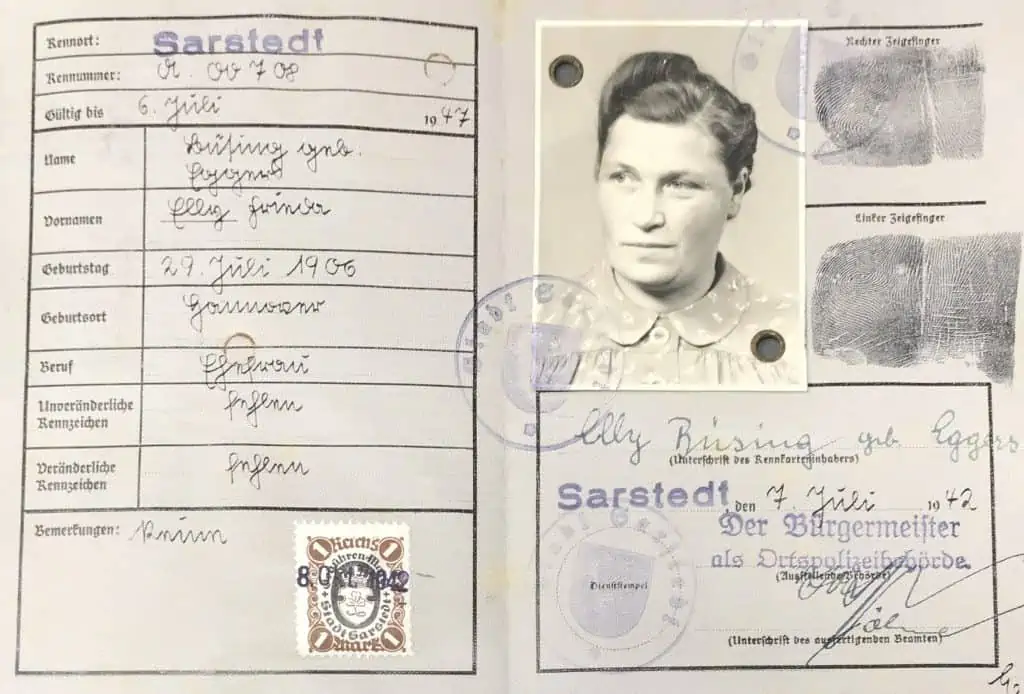 Kennort: Sarstedt
Kennummer: A. 00708
Gültig bis 6. Juli 1947
Name
Büsing geb.
Eggers
Vornamen Elly Frieda
Geburtstag 29. Juli 1906
Geburtsort Hannover
Beruf Ehefrau
Unveränderliche Kennzeichen fehlen
Veränderliche Kennzeichen fehlen
Bemerkungen: Keine
1 Reichs 1
8. OKT. 1942
Stadt Sarstedt
1 Mark 1
Rechter Zeigefinger
Linker Zeigefinger
Stadt Sarstedt
Elly Büsing geb. Eggers
(Unterschrift des Kennkarteninhabers)
Sarstedt, den 7. Juli 1942
Der Bürgermeister
als Ortspolizeibehörde.
(Ausstellende Behörde)
Dienststempel
(Unterschrift des ausfertigenden Beamten)